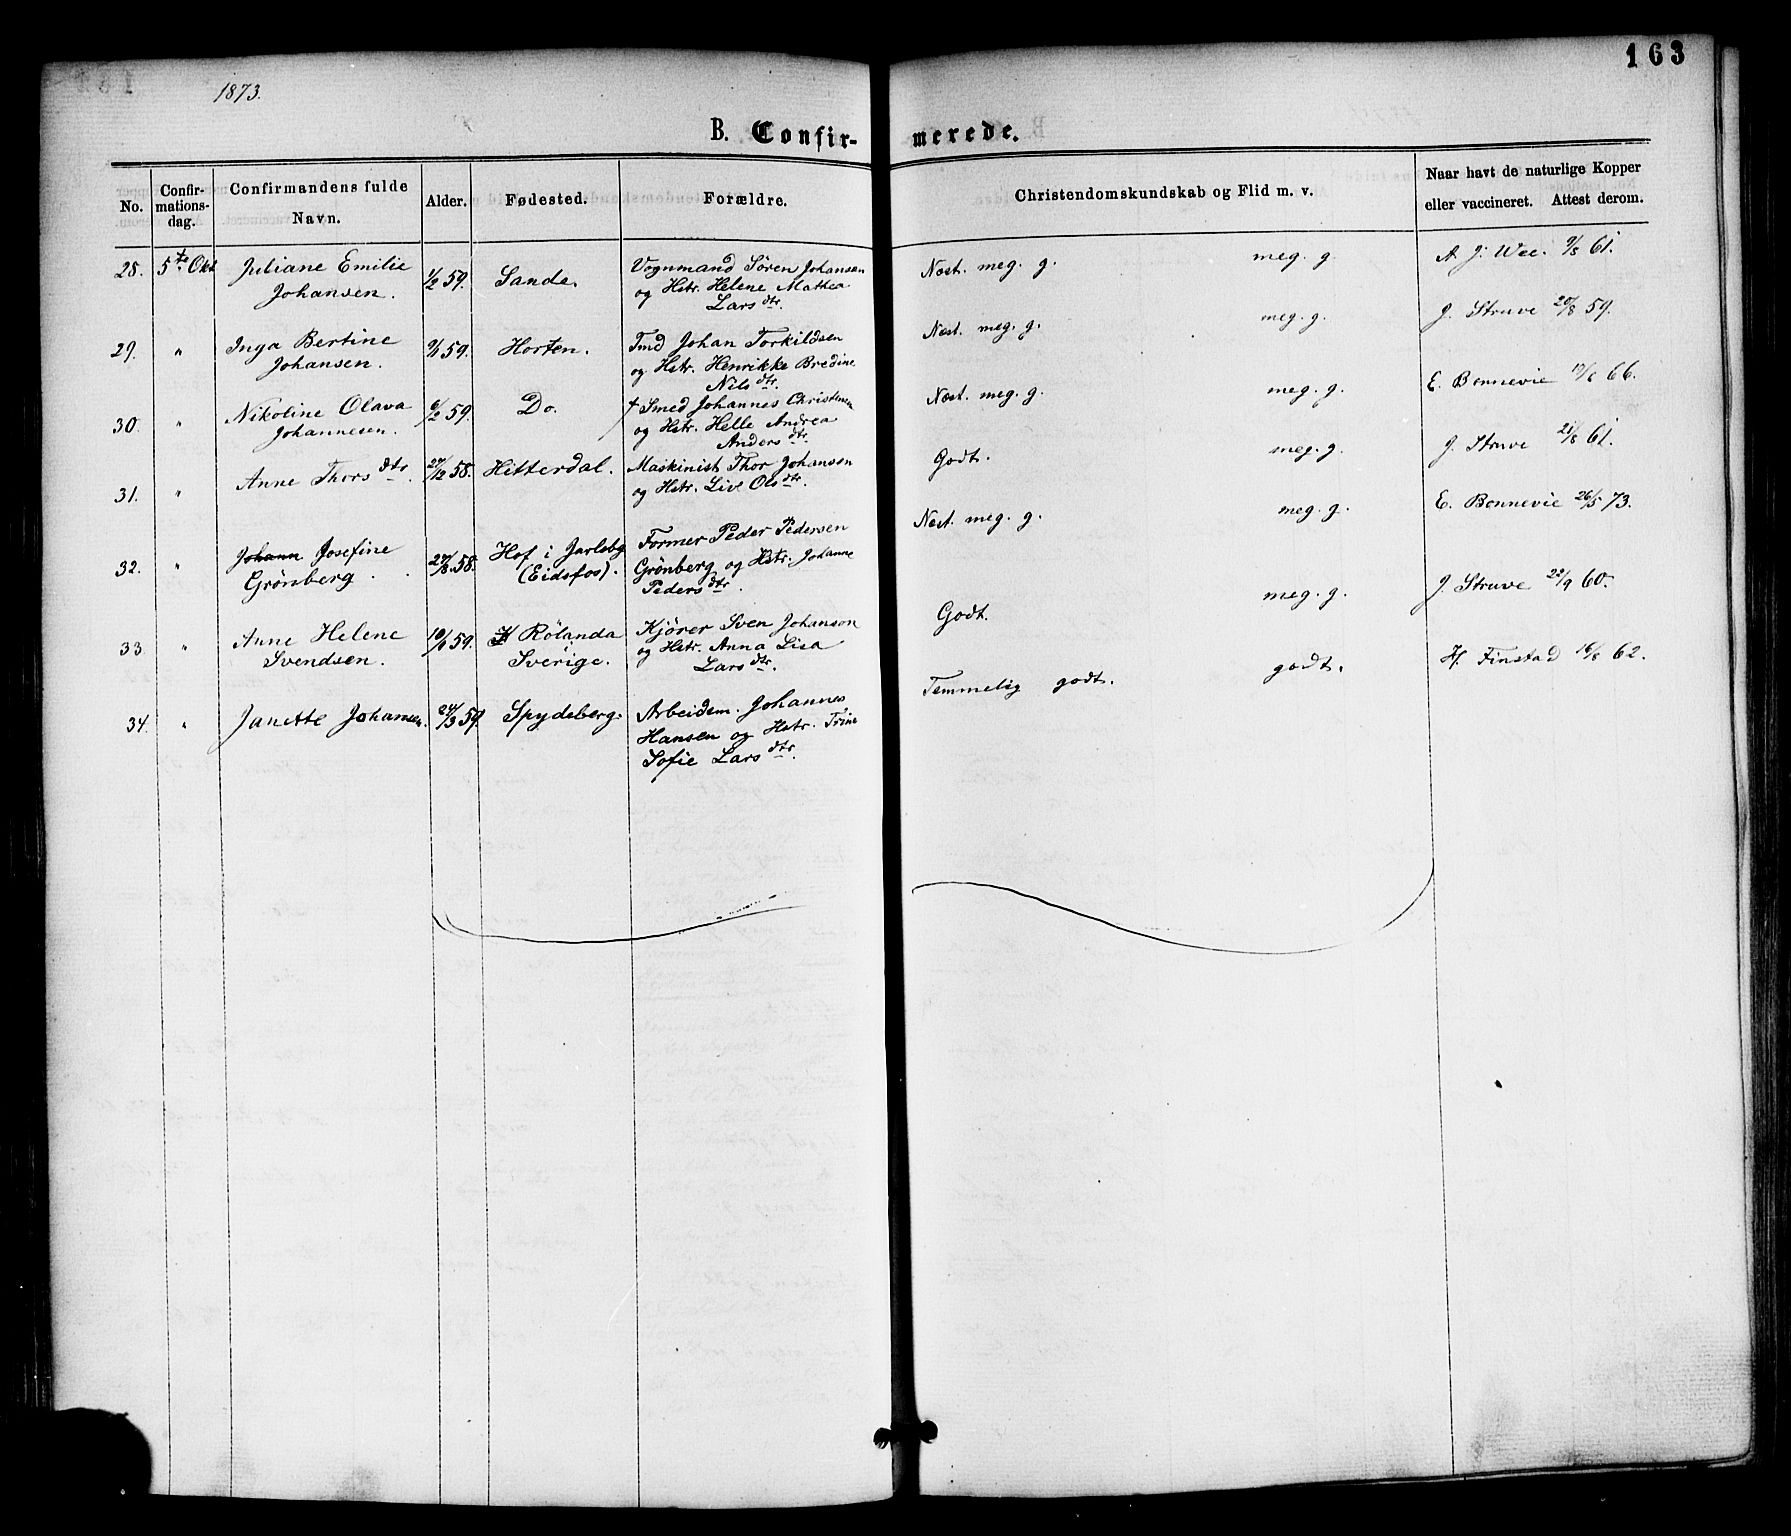 163
1873.
B. Confir- merede.
No.
Confir-
mations-
dag.
Confirmandens fulde
Navn.
Alder.
Fødested.
Forældre.
Christendomskundskab og Flid m. v.
Naar havt de naturlige Kopper
eller vaccineret. Attest derom.
28. 5te Okt Juliane Emilie 1/2 59. Sande. Vognmand Sören Johansen Næst. meg. g. meg. g. A. J. Wee. 9/8 61.
Johansen. og Hstr. Helene Mattea
Lars dtr.
29. " Inga Bertine 9/1 59. Horten. Tmd Johan Torkildsen Næst. meg. g. meg. g. J. Struve 20/8 59.
Johansen. og Hstr. Henrikke Bredine
Nils dtr.
30. " Nikoline Olava 6/2 59. Do. † Smed Johannes Christensen Næst. meg. g. meg. g. E. Bonnevie 66.
Johannesen. og Hstr. Helle Andrea
Anders dtr.
31. " Anne Thors dtr. 27/12 58. Hitterdal. Maskinist Thor Johansen Godt. meg. g. J. Struve 21/8 61.
og Hstr. Live Ols dtr.
32. " Johann Josefine 27/8 58. Hof i Jarlsbg Former Peder Pedersen Næst. meg. g. meg. g. E. Bonnevie 26/5 73.
Grönberg. (Eidsfos). Grönberg og Hstr. Johanne
Peders dtr.
33. " Anne Helene 59. Rölanda Kjörer Sven Johanson Godt. meg. g. J. Struve 22/9 60.
Svendsen. i Sverige. og Hstr. Anna Lisa
Lars dtr.
34. " Janette Johansen. 24/3 59. Spydeberg. Arbeidsm. Johannes Temmelig godt. godt. H. Finstad 16/8 62.
Hansen og Hstr. Trine
Sofie Lars dtr.